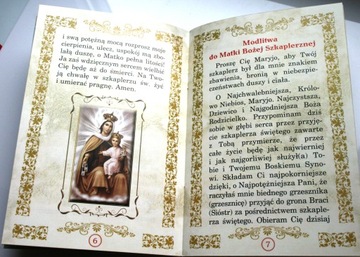 i swą potężną mocą rozprosz moje
cierpienia, ulecz, uspokój mą zbo-
lałą duszę, o Matko pełna litości!
Ja zaś wdzięcznym sercem wielbić
Cię będę aż do śmierci. Na Two-
ją chwałę w szkaplerzu św. żyć
i umierać pragnę. Amen.
6
Modlitwa
do Matki Bożej Szkaplerznej
Proszę Cię Maryjo, aby Twój
szkaplerz był dla mnie znakiem
zbawienia, bronią w niebezpie-
czeństwach duszy i ciała.
O Najchwalebniejsza, Królo-
wo Niebios, Maryjo. Najczystsza,
Dziewico i Najgodniejsza Boża
Rodzicielko. Przypominam dziś
sobie w głębi serca przez przyję-
cie szkaplerza świętego zawarte
z Tobą przymierze, że przez
całe życie będę jak najwierniej
i jak najgorliwiej służył(a) To-
bie i Twojemu Boskiemu Syno-
wi. Składam Ci najpokorniejsze
dzięki, o Najpotężniejsza Pani, że
raczyłaś mnie biednego grzesznika
(grzesznicę) przyjąć do grona Braci
(Sióstr) za pośrednictwem szkaple-
rza świętego. Obieram Cię dzisiaj
7